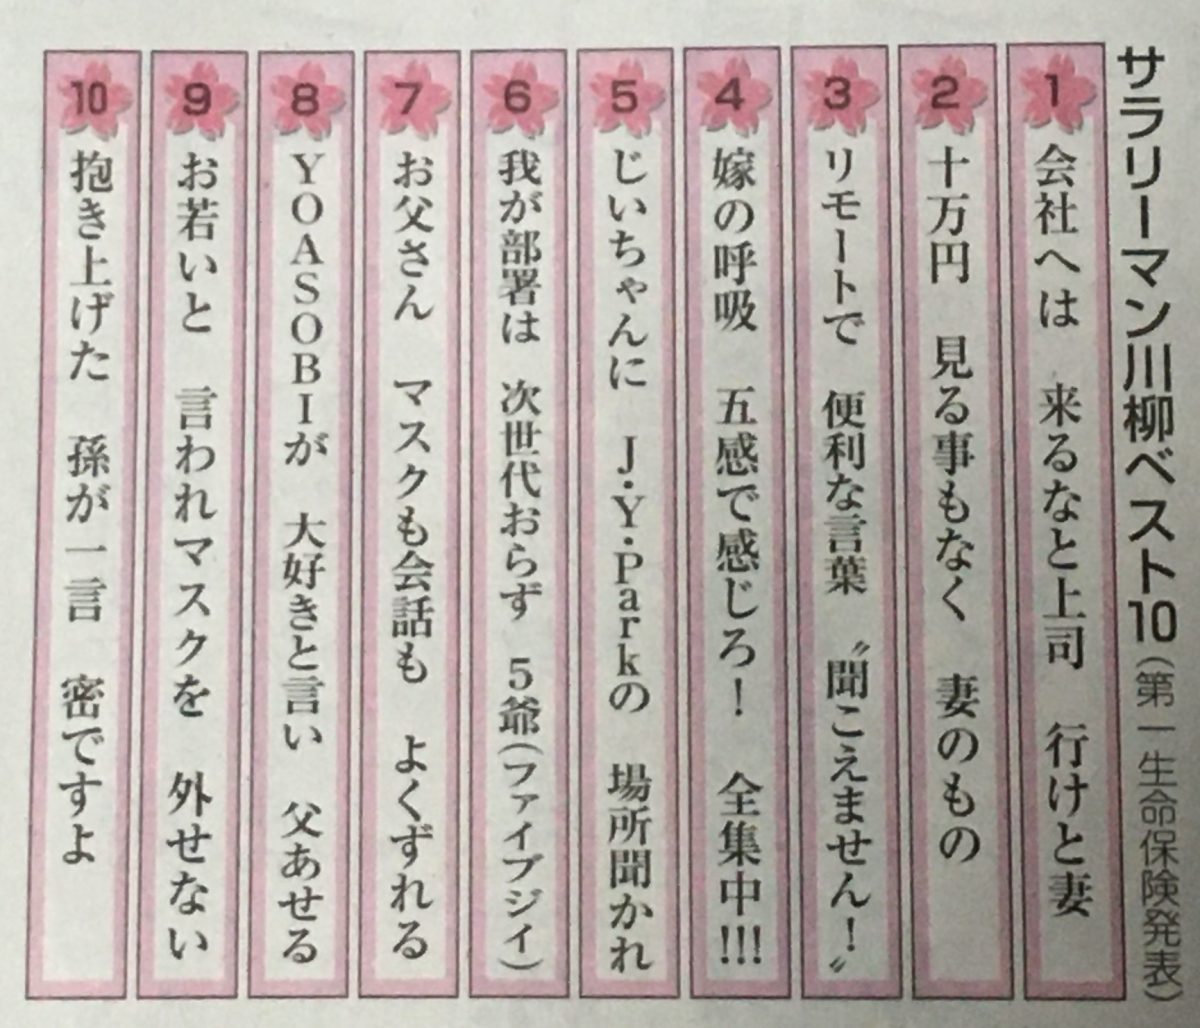 サラリーマン川柳ベスト10(第一生命保険発表)
1 会社へは 来るなと上司 行けと妻
2 十万円 見る事もなく 妻のもの
3 リモートで 便利な言葉 〝聞こえません!〟
4 嫁の呼吸 五感で感じろ! 全集中!!!
5 じいちゃんに J・Y・Parkの 場所聞かれ
6 我が部署は 次世代おらず 5爺(ファイブジイ)
7 お父さん マスクも会話も よくずれる
8 YOASOBIが 大好きと言い 父あせる
9 お若いと 言われマスクを 外せない
10 抱き上げた 孫が一言 密ですよ